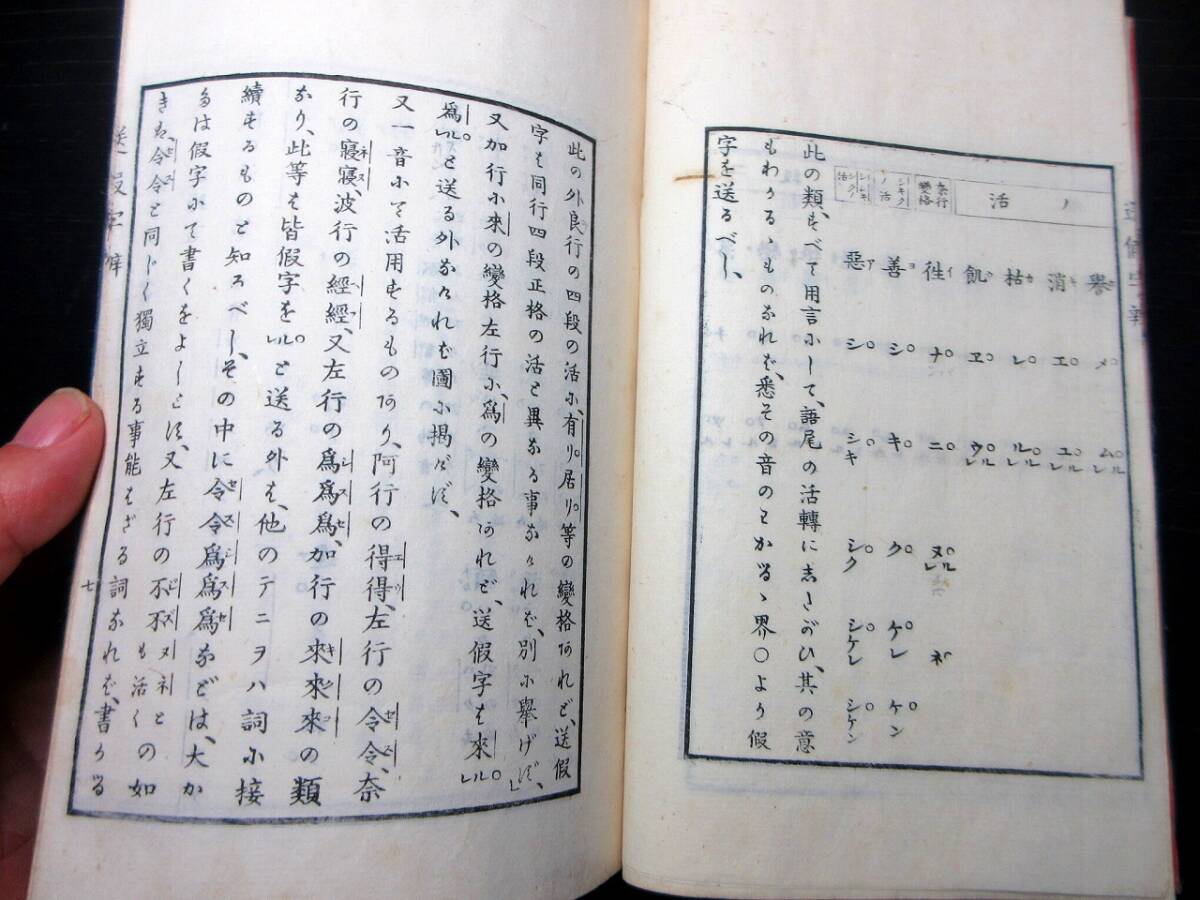 ノ活
奈行變格
シキク ノ活
シヽシキシクノ活
譽 メ ムレル
消キ エ ユレル
枯カ レ ルレル
飢 ヱ ウレル
徃イ ナ ニ ヌレル ネ
善ヨ シ キ ク ケレ ケン
惡ア シ シキ シク シケレ シケン
此の類、すべて用言にして、語尾の活轉にしたがひ、其の意
もわかるゝものなれば、悉その音のわかるゝ界○より假
字を送るべし、
此の外良行の四段の活に、有リ居リ等の變格あれど、送假
字も同行四段正格の活と異なる事なければ、別に擧げず、
又加行に來の變格左行に、爲の變格あれど、送假字も來ルレ
爲ルレと送る外なければ圖に揭げず、
又一音にて活用するものあり、阿行の得エ得ウ、左行の令セ令ス、奈
行の寢ネ寢ヌ、波行の經ヘ經フ、又左行の爲シ爲ス爲セ、加行の來キ來ク來コの類
なり、此等も皆假字をルレと送る外も、他のテニヲハ詞に接
續するものと知るべし、その中に令セ令ス爲シ爲ス爲セなどは、大か
たは假字にて書くをよしとす、又左行の不ジ不ズヌネとも活くの如
きは、令セ令スと同じく獨立する事能はざる詞なれば、書かる
送假字
七